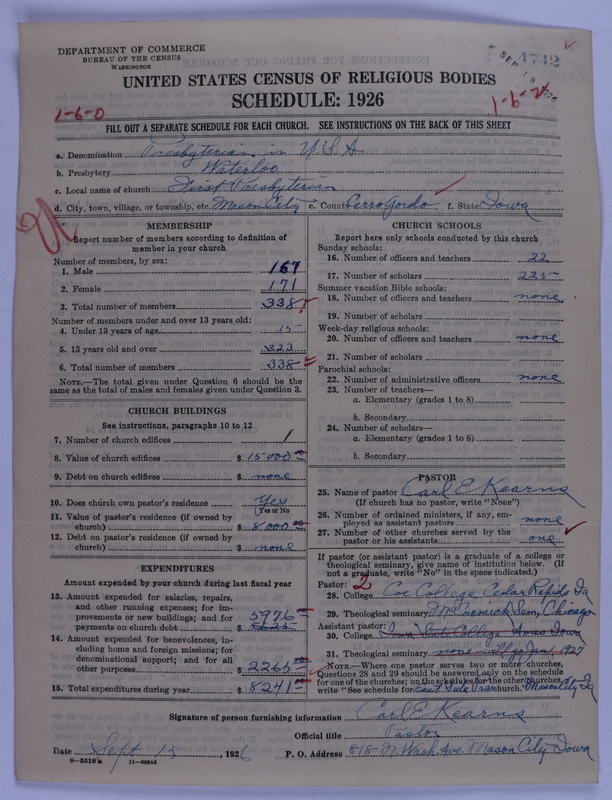 DEPARTMENT OF COMMERCE
BUREAU OF THE CENSUS
WASHINGTON
4742
UNITED STATES CENSUS OF RELIGIOUS BODIES
SCHEDULE: 1926
1-6-0
1-6-2
FILL OUT A SEPARATE SCHEDULE FOR EACH CHURCH. SEE INSTRUCTIONS ON THE BACK OF THIS SHEET
a. Denomination Presbyterian in U.S.A.
b. Presbytery Waterloo
c. Local name of church First Presbyterian
d. City, town, village, or township, etc. Mason City e. County Cerro Gordo f. State Iowa
MEMBERSHIP
Report number of members according to definition of member in your church
Number of members, by sex:
1. Male 167
2. Female 171
3. Total number of members 338
Number of members under and over 13 years old:
4. Under 13 years of age 15
5. 13 years old and over 323
6. Total number of members 338
NOTE.—The total given under Question 6 should be the same as the total of males and females given under Question 3.
CHURCH BUILDINGS
See instructions, paragraphs 10 to 12
7. Number of church edifices 1
8. Value of church edifices $ 15000
9. Debt on church edifices $ none
10. Does church own pastor's residence Yes
(Yes or No)
11. Value of pastor's residence (if owned by church) $ 8,000
12. Debt on pastor's residence (if owned by church) $ none
EXPENDITURES
Amount expended by your church during last fiscal year
13. Amount expended for salaries, repairs, and other running expenses; for improvements or new buildings; and for payments on church debt $ 5976
14. Amount expended for benevolences, including home and foreign missions; for denominational support; and for all other purposes $ 2265
15. Total expenditures during year $ 8241
CHURCH SCHOOLS
Report here only schools conducted by this church
Sunday schools:
16. Number of officers and teachers 22
17. Number of scholars 225
Summer vacation Bible schools:
18. Number of officers and teachers none
19. Number of scholars
Week-day religious schools:
20. Number of officers and teachers none
21. Number of scholars
Parochial schools:
22. Number of administrative officers none
23. Number of teachers—
a. Elementary (grades 1 to 8)
b. Secondary
24. Number of scholars—
a. Elementary (grades 1 to 8)
b. Secondary
PASTOR
25. Name of pastor Carl E. Kearns
(If church has no pastor, write "None")
26. Number of ordained ministers, if any, employed as assistant pastors none
27. Number of other churches served by the pastor or his assistants one
If pastor (or assistant pastor) is a graduate of a college or theological seminary, give name of institution below. (If not a graduate, write "No" in the space indicated.)
Pastor: 2
28. College Coe College Cedar Rapids Ia
29. Theological seminary McCormick Sem, Chicago
Assistant pastor:
30. College Iowa State College Ames Iowa
31. Theological seminary none
NOTE.—Where one pastor serves two or more churches, Questions 28 and 29 should be answered only on the schedule for one of the churches; on the schedules for the other churches write "See schedule for East Side Pres church." Mason City Ia
Signature of person furnishing information Carl E. Kearns
Official title Pastor
Date Sept 13, 1926 P. O. Address 818 N. Wash. Ave. Mason City Iowa
8—5318a 11—90646